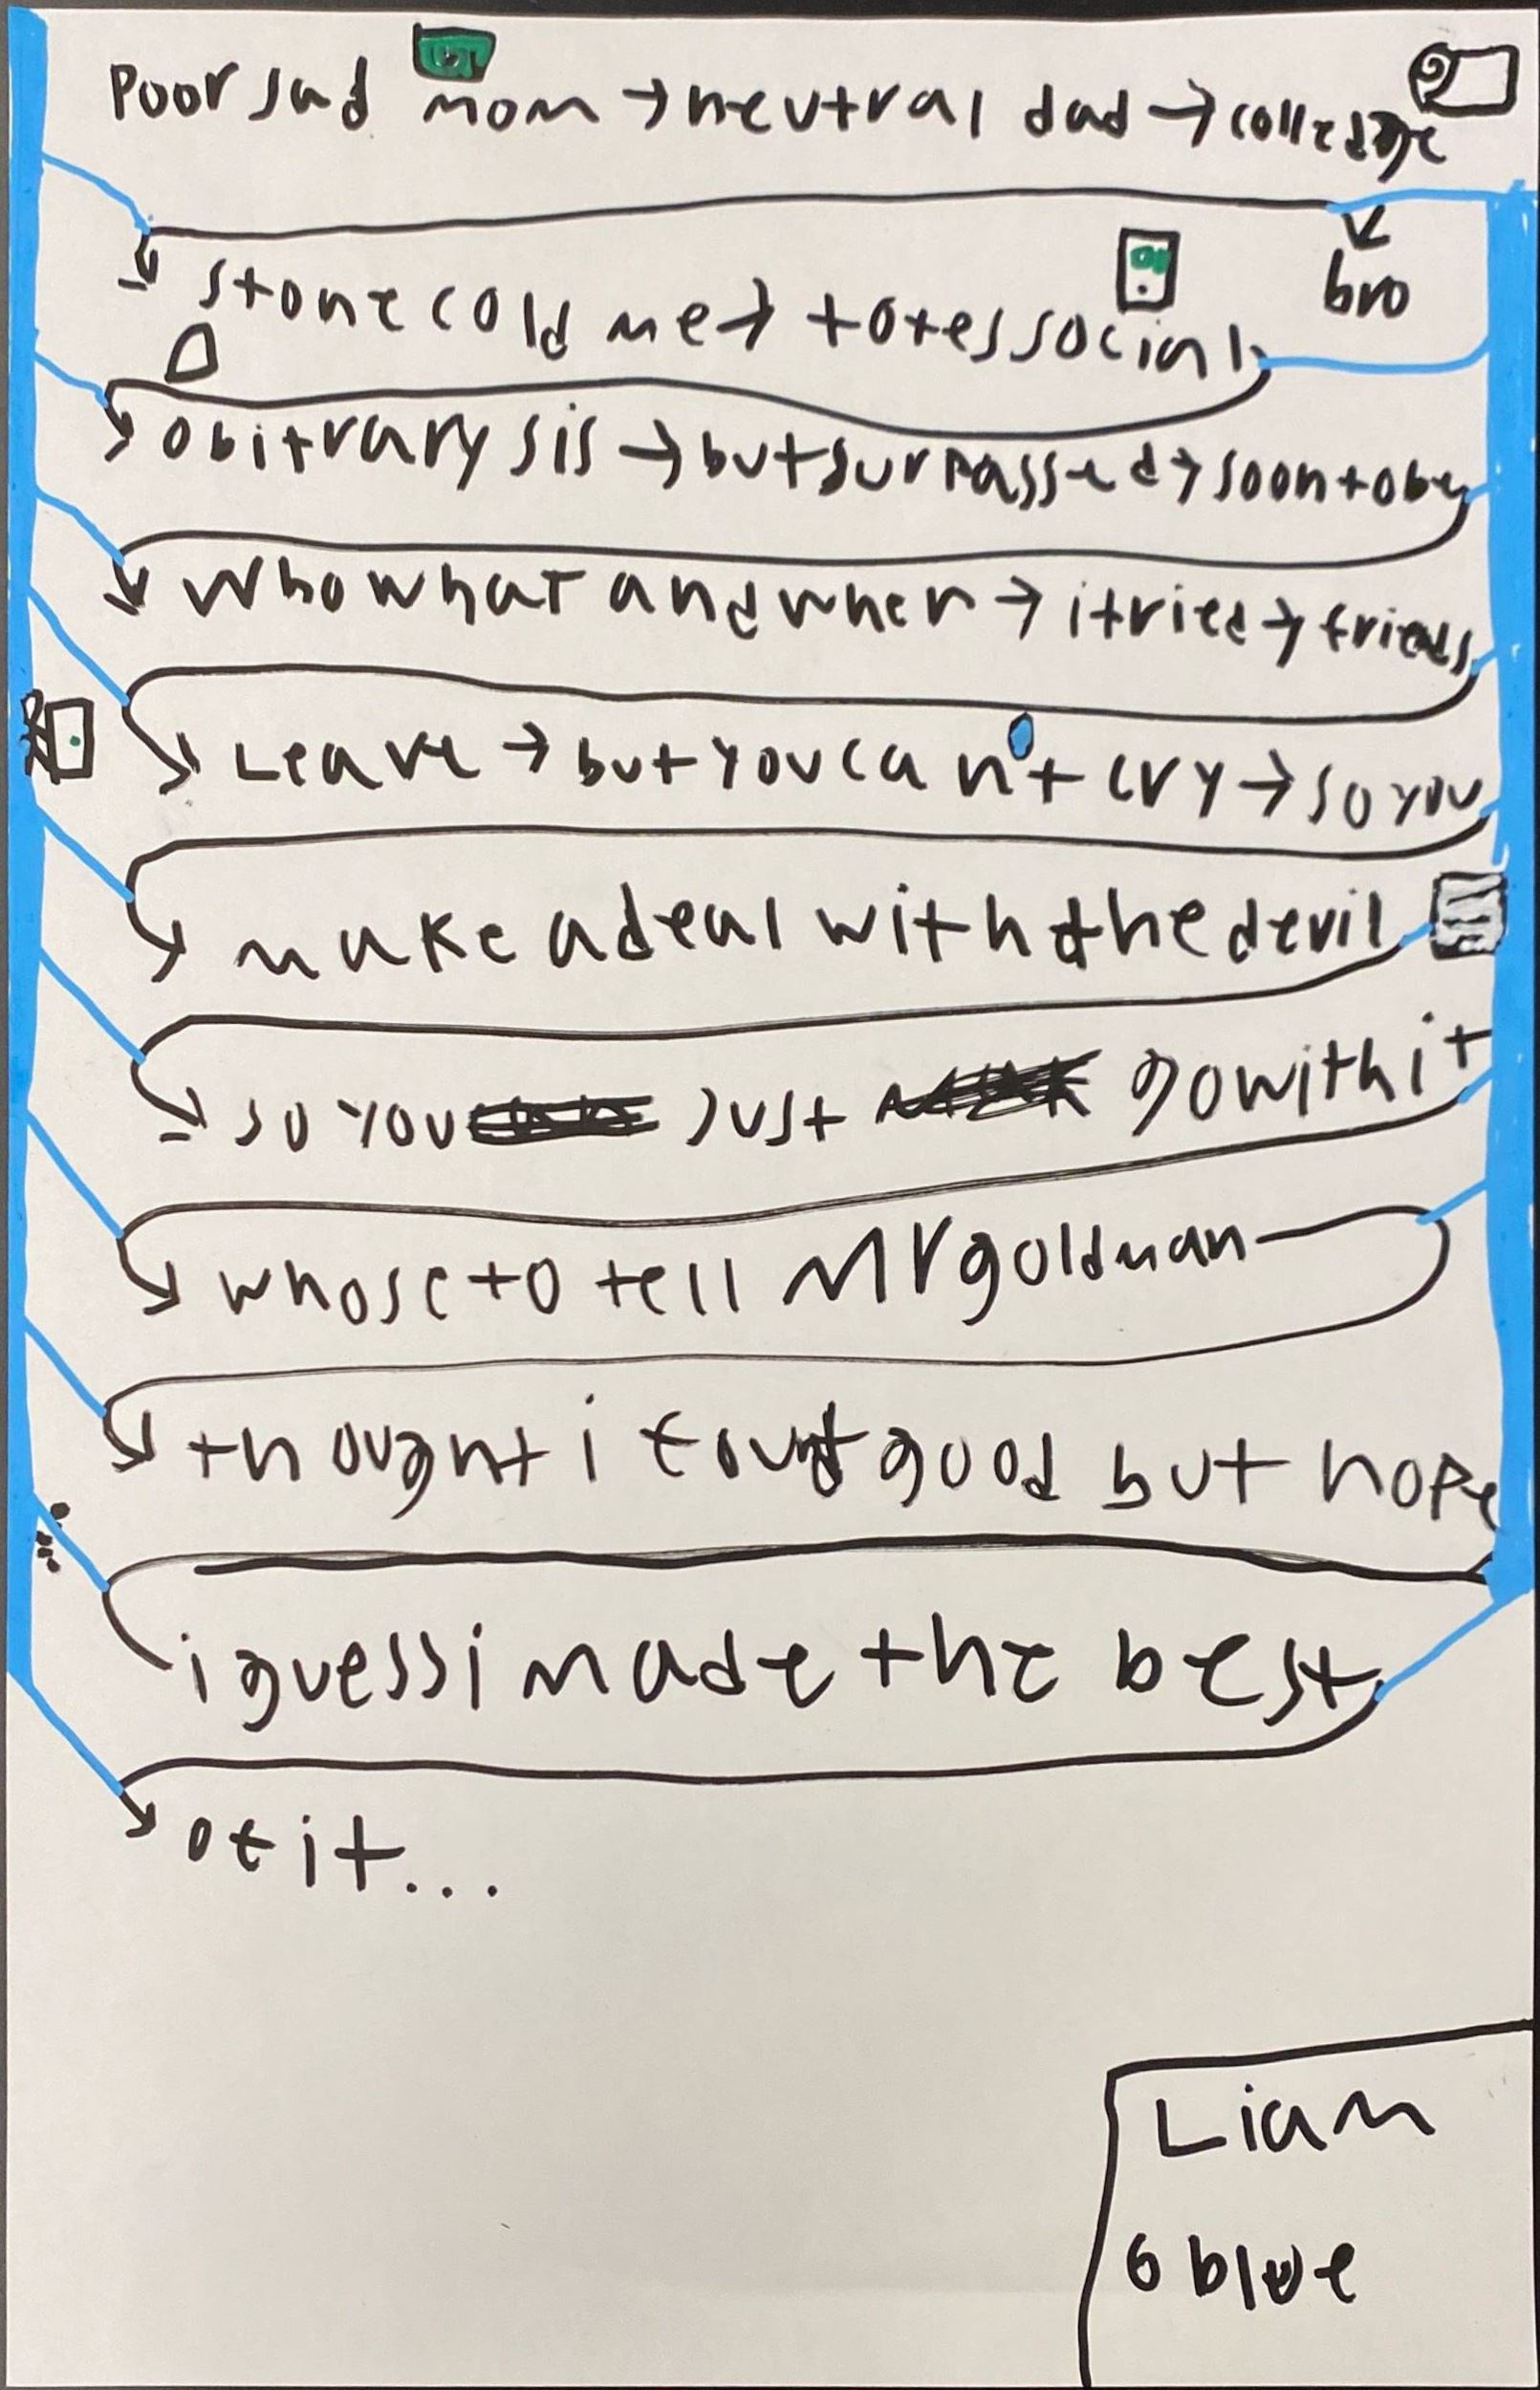 Poor sad mom → neutral dad → colledge
bro
stone cold me → totes social
obitrary sis → but surpassed → soon to be
Who what and when → i tried → friends
Leave → but you can't cry → so you
make a deal with the devil
so you just go with it
whose to tell Mr goldman
thought i found good but nope
i guess i made the best
of it...
Liam
6 blue